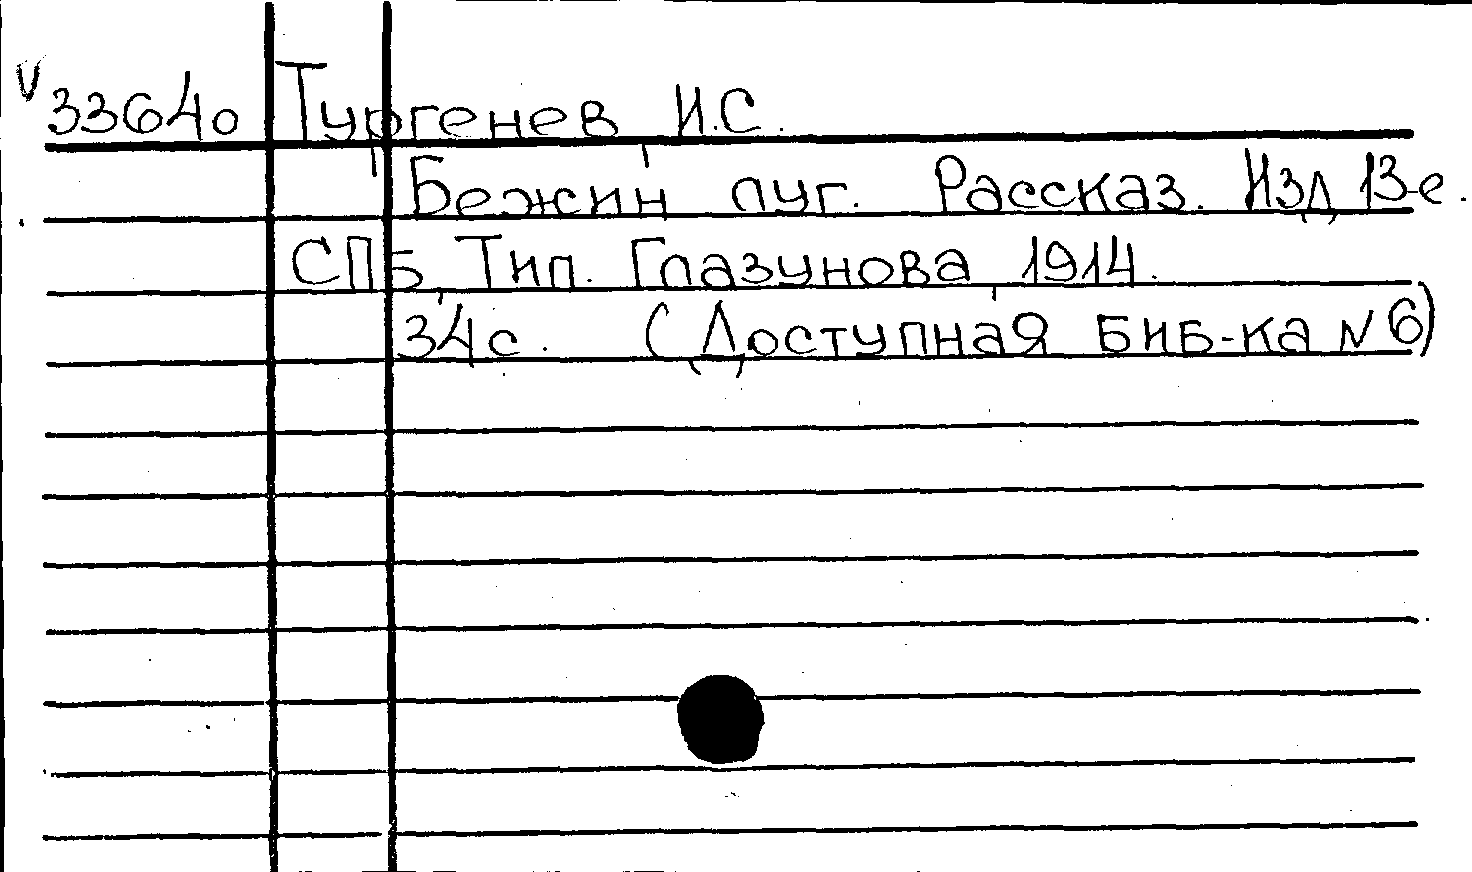 V 33640 Тургенев И.С.
Бежин луг. Рассказ. Изд 13-е.
СПБ, Тип. Глазунова 1914.
34с. (Доступная биб-ка №6)